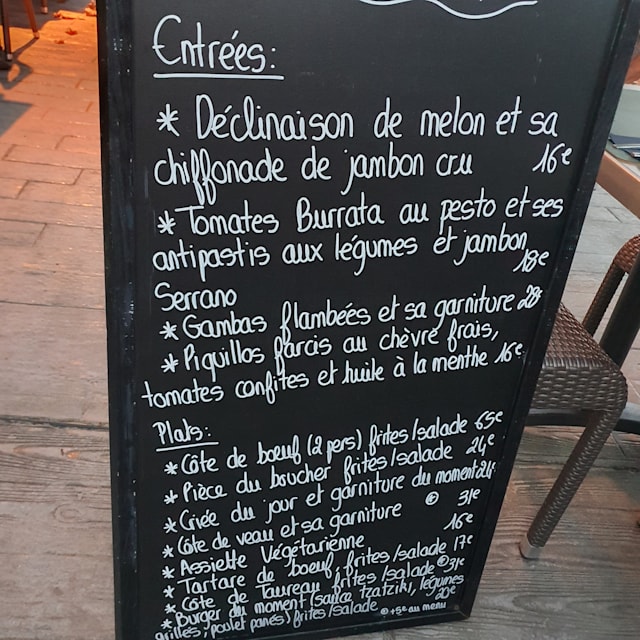 Entrées:
* Déclinaison de melon et sa
chiffonade de jambon cru 16€
* Tomates Burrata au pesto et ses
antipastis aux légumes et jambon
Serrano 18€
* Gambas flambées et sa garniture 28€
* Piquillos farcis au chèvre frais,
tomates confites et huile à la menthe 16€
Plats:
* Côte de bœuf (2 pers) frites/salade 65€
* Pièce du boucher frites/salade 24€
* Criée du jour et garniture du moment 24€
* Côte de veau et sa garniture 31€
* Assiette Végétarienne 16€
* Tartare de bœuf, frites/salade 17€
* Côte de Taureau, frites/salade 31€
* Burger du moment (sauce tzatziki, légumes
grillés, poulet panés) frites/salade 20€
+5€ au menu